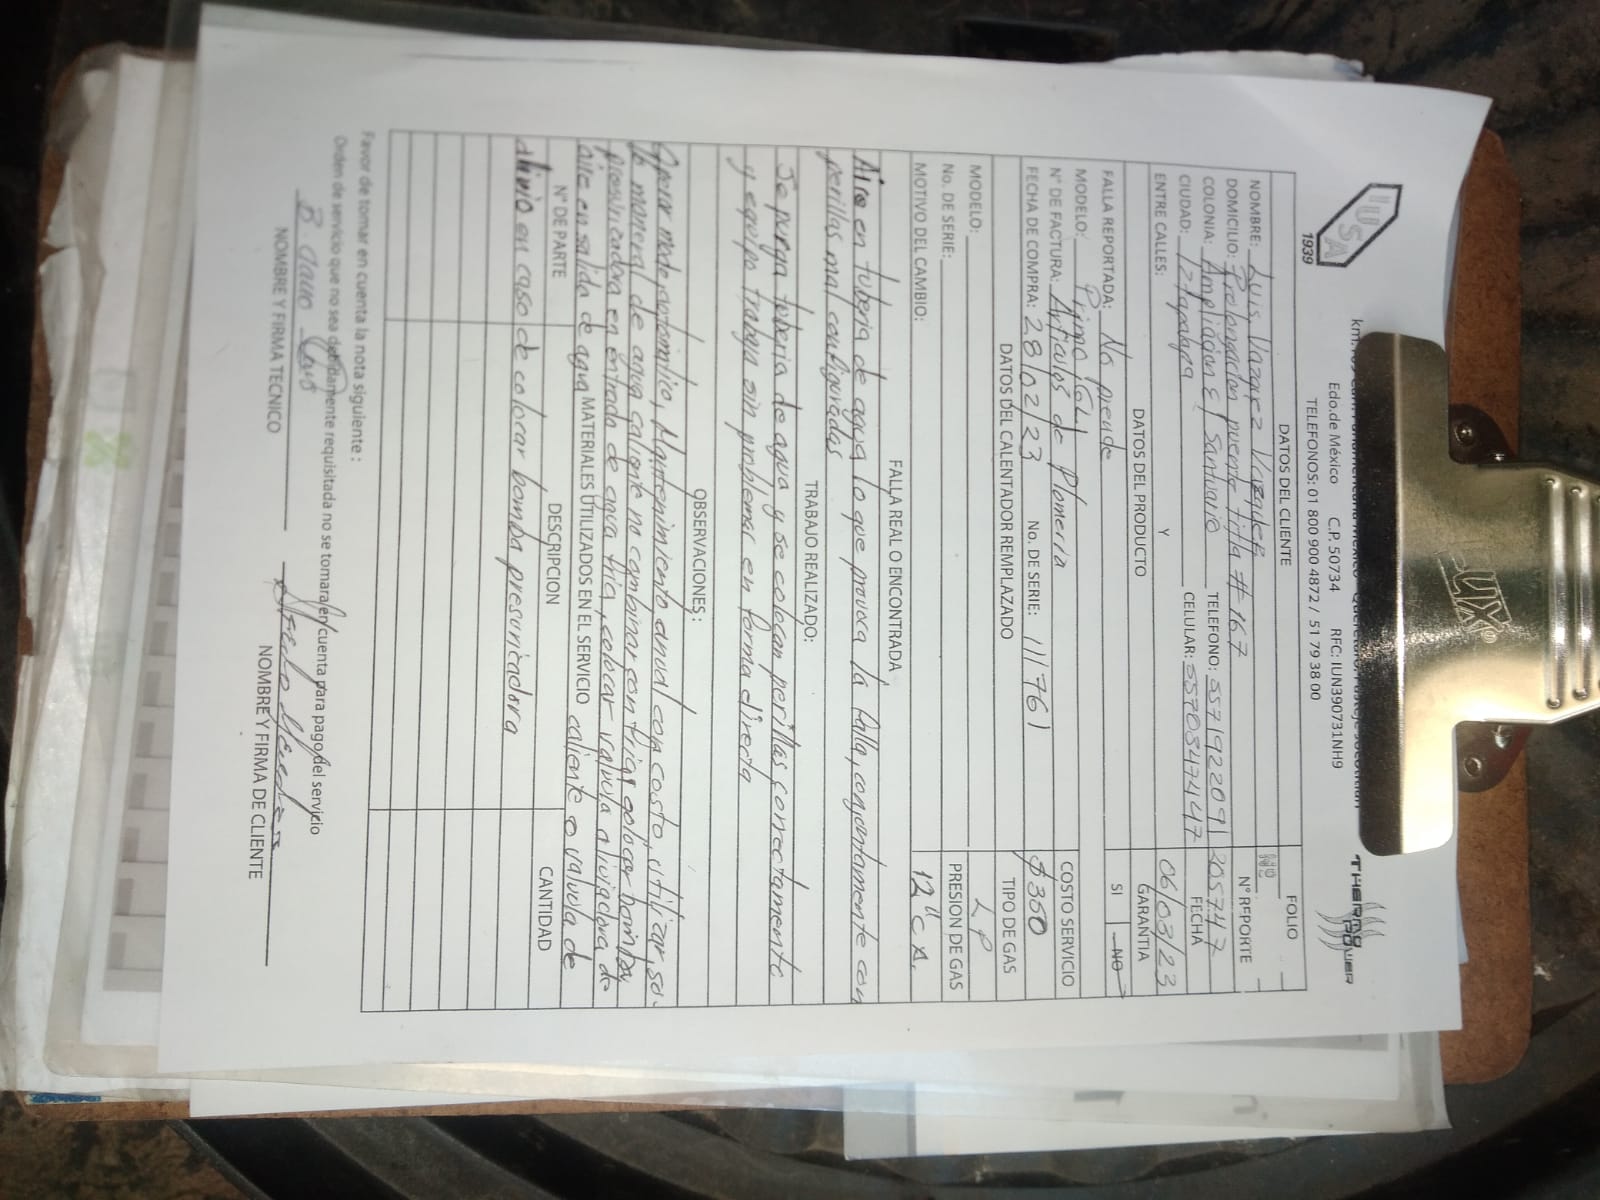 IUSA
1939
Edo.de México C.P. 50734 RFC: IUN390731NH9
TELEFONOS: 01 800 900 4872 / 51 79 38 00
THERMO POWER
DATOS DEL CLIENTE
FOLIO
Nº
NOMBRE: Luis Vazquez
DOMICILIO: Prolongacion puente titla # 167
N° REPORTE
COLONIA: Ampliacion El Santuario TELEFONO: 5571922091
205747
CIUDAD: Iztapalapa CELULAR: 5570547447
FECHA
ENTRE CALLES: Y
06/03/23
DATOS DEL PRODUCTO
GARANTIA
FALLA REPORTADA: No prende
SI NO
MODELO: Primo
N° DE FACTURA: Articulos de Plomeria
COSTO SERVICIO
FECHA DE COMPRA: 28/02/23 No. DE SERIE: 111761
$350
DATOS DEL CALENTADOR REMPLAZADO
TIPO DE GAS
MODELO:
LP
No. DE SERIE:
PRESION DE GAS
MOTIVO DEL CAMBIO:
12" CA.
FALLA REAL O ENCONTRADA
Aire en tuberia de agua lo que provoca la falla, conjuntamente con
perillas mal configuradas
TRABAJO REALIZADO:
Se purga tuberia de agua y se colocan perillas correctamente
y equipo trabaja sin problemas en forma directa
OBSERVACIONES:
Operar modo automatico, Mantenimiento anual con costo, utilizar so-
lo maneral de agua caliente no combinar con fria, colocar bomba
presuricadora en entrada de agua fria, colocar valvula aliviadora de
aire en salida de agua MATERIALES UTILIZADOS EN EL SERVICIO caliente o valvula de
N° DE PARTE DESCRIPCION CANTIDAD
alivio en caso de colocar bomba presuricadora
Favor de tomar en cuenta la nota siguiente :
Orden de servicio que no sea debidamente requisitada no se tomara en cuenta para pago del servicio
NOMBRE Y FIRMA TECNICO
NOMBRE Y FIRMA DE CLIENTE
LUX®